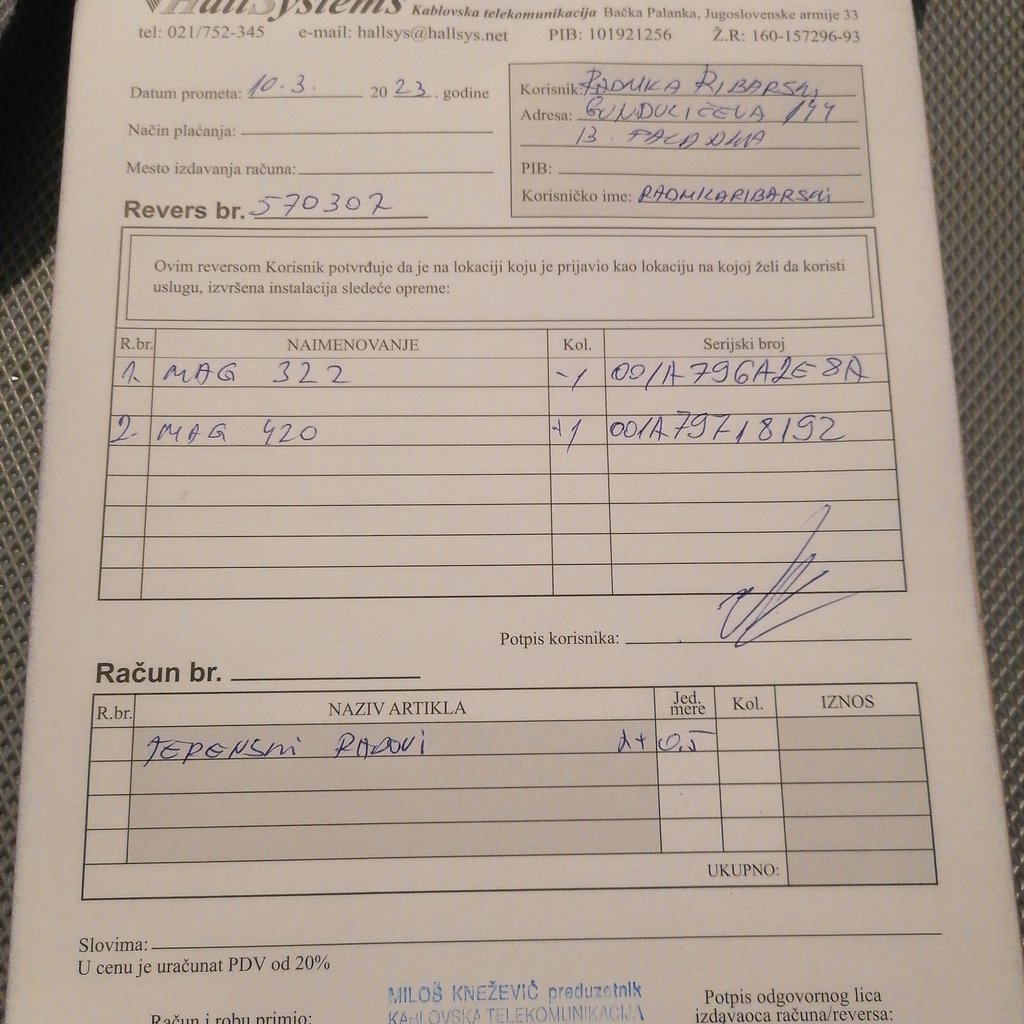 HallSystems Kablovska telekomunikacija Bačka Palanka, Jugoslovenske armije 33
tel: 021/752-345 e-mail: hallsys@hallsys.net PIB: 101921256 Ž.R: 160-157296-93
Datum prometa: 10.3. 2023. godine
Način plaćanja:
Mesto izdavanja računa:
Revers br. 570302
Korisnik: RADMILA RIBARSKI
Adresa: GUNDULIĆEVA 144
B. PALANKA
PIB:
Korisničko ime: RADMILARIBARSKI
Ovim reversom Korisnik potvrđuje da je na lokaciji koju je prijavio kao lokaciju na kojoj želi da koristi
uslugu, izvršena instalacija sledeće opreme:
R.br. NAIMENOVANJE Kol. Serijski broj
1. MAG 322 -1 001A796A2E8A
2. MAG 420 +1 001A79718192
Potpis korisnika:
Račun br.
R.br. NAZIV ARTIKLA Jed. mere Kol. IZNOS
TERENSKI RADOVI 0,5
UKUPNO:
Slovima:
U cenu je uračunat PDV od 20%
MILOŠ KNEŽEVIĆ preduzetnik
KABLOVSKA TELEKOMUNIKACIJA
Račun i robu primio:
Potpis odgovornog lica
izdavaoca računa/reversa: